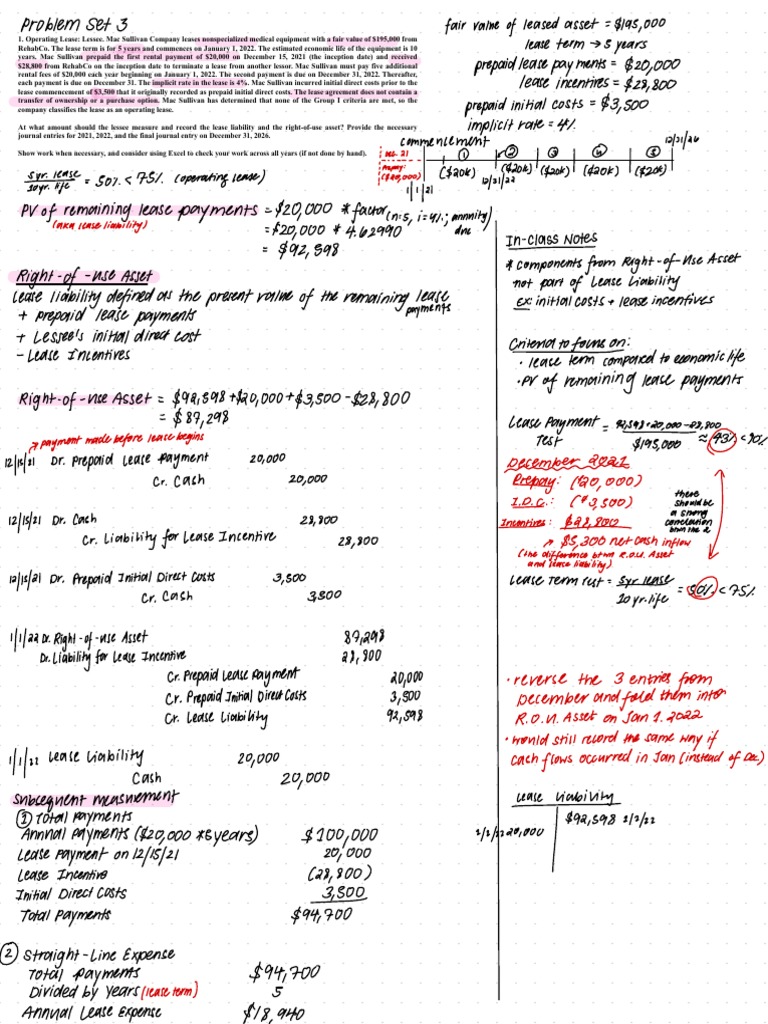 Problem Set 3
1. Operating Lease: Lessee. Mac Sullivan Company leases nonspecialized medical equipment with a fair value of $195,000 from
RehabCo. The lease term is for 5 years and commences on January 1, 2022. The estimated economic life of the equipment is 10
years. Mac Sullivan prepaid the first rental payment of $20,000 on December 15, 2021 (the inception date) and received
$28,800 from RehabCo on the inception date to terminate a lease from another lessor. Mac Sullivan must pay five additional
rental fees of $20,000 each year beginning on January 1, 2022. The second payment is due on December 31, 2022. Thereafter,
each payment is due on December 31. The implicit rate in the lease is 4%. Mac Sullivan incurred initial direct costs prior to the
lease commencement of $3,500 that it originally recorded as prepaid initial direct costs. The lease agreement does not contain a
transfer of ownership or a purchase option. Mac Sullivan has determined that none of the Group I criteria are met, so the
company classifies the lease as an operating lease.
At what amount should the lessee measure and record the lease liability and the right-of-use asset? Provide the necessary
journal entries for 2021, 2022, and the final journal entry on December 31, 2026.
Show work when necessary, and consider using Excel to check your work across all years (if not done by hand).
fair value of leased asset = $195,000
lease term → 5 years
prepaid lease payments = $20,000
lease incentives = $28,800
prepaid initial costs = $3,500
implicit rate = 4%
commencement
12/31/26
Dec. 21
① ② ③ ④ ⑤
($20,000)
($20k) ($20k) ($20k) ($20k) ($20k)
1/1/21
12/31/22
5yr. lease
10yr. life
= 50% < 75% (operating lease)
PV of remaining lease payments = $20,000 * factor (n=5, i=4%; annuity
due
(aka lease liability)
= $20,000 * 4.62990
= $92,598
Right-of-use Asset
Lease liability defined as the present value of the remaining lease
payments
+ prepaid lease payments
+ Lessee's initial direct cost
- Lease Incentives
Right-of-use Asset = $92,598 + $20,000 + $3,500 - $28,800
= $87,298
→ payment made before lease begins
12/15/21 Dr. Prepaid Lease Payment 20,000
Cr. Cash 20,000
12/15/21 Dr. Cash 28,800
Cr. Liability for Lease Incentive 28,800
12/15/21 Dr. Prepaid Initial Direct Costs 3,500
Cr. Cash 3,500
1/1/22 Dr. Right-of-use Asset 87,298
Dr. Liability for Lease Incentive 28,800
Cr. Prepaid Lease Payment 20,000
Cr. Prepaid Initial Direct Costs 3,500
Cr. Lease Liability 92,598
1/1/22 Lease Liability 20,000
Cash 20,000
Subsequent measurement
① Total Payments
Annual Payments ($20,000 * 5 years) $100,000
Lease Payment on 12/15/21 20,000
Lease Incentive (28,800)
Initial Direct Costs 3,500
Total Payments $94,700
② Straight-Line Expense
Total Payments $94,700
Divided by Years (lease term) 5
Annual Lease Expense $18,940
In-Class Notes
* components from Right-of-Use Asset
not part of Lease Liability
ex: initial costs + lease incentives
Criteria to focus on:
· lease term compared to economic life
· PV of remaining lease payments
Lease Payment
Test
= 92,598+20,000-28,800
$195,000
≈ 43% < 90%
December 2021
Prepay: ($20,000)
I.D.C: ($3,500)
Incentives: $28,800
→ $5,300 net cash inflow
(the difference btwn R.O.U. Asset
and lease liability)
there
should be
a strong
correlation
btwn the 2
Lease Term Test = 5yr lease
10yr. life
= 50% < 75%
· reverse the 3 entries from
December and fold them into
R.O.U. Asset on Jan 1. 2022
· would still record the same way if
cash flows occurred in Jan (instead of Dec)
Lease Liability
$92,598
20,000